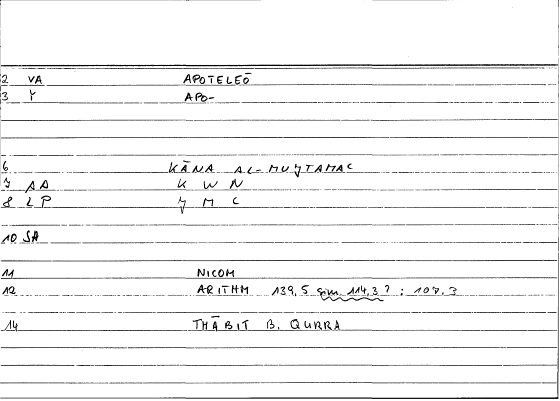 2 VA APOTELEŌ
3 Y APO-
6 KĀNA AL-MUJTAMAC
7 AA K W N
8 LP J M C
10 SA
11 NICOM
12 ARITHM 139,5 sim. 114,3? : 107.3
14 THĀBIT B. QURRA